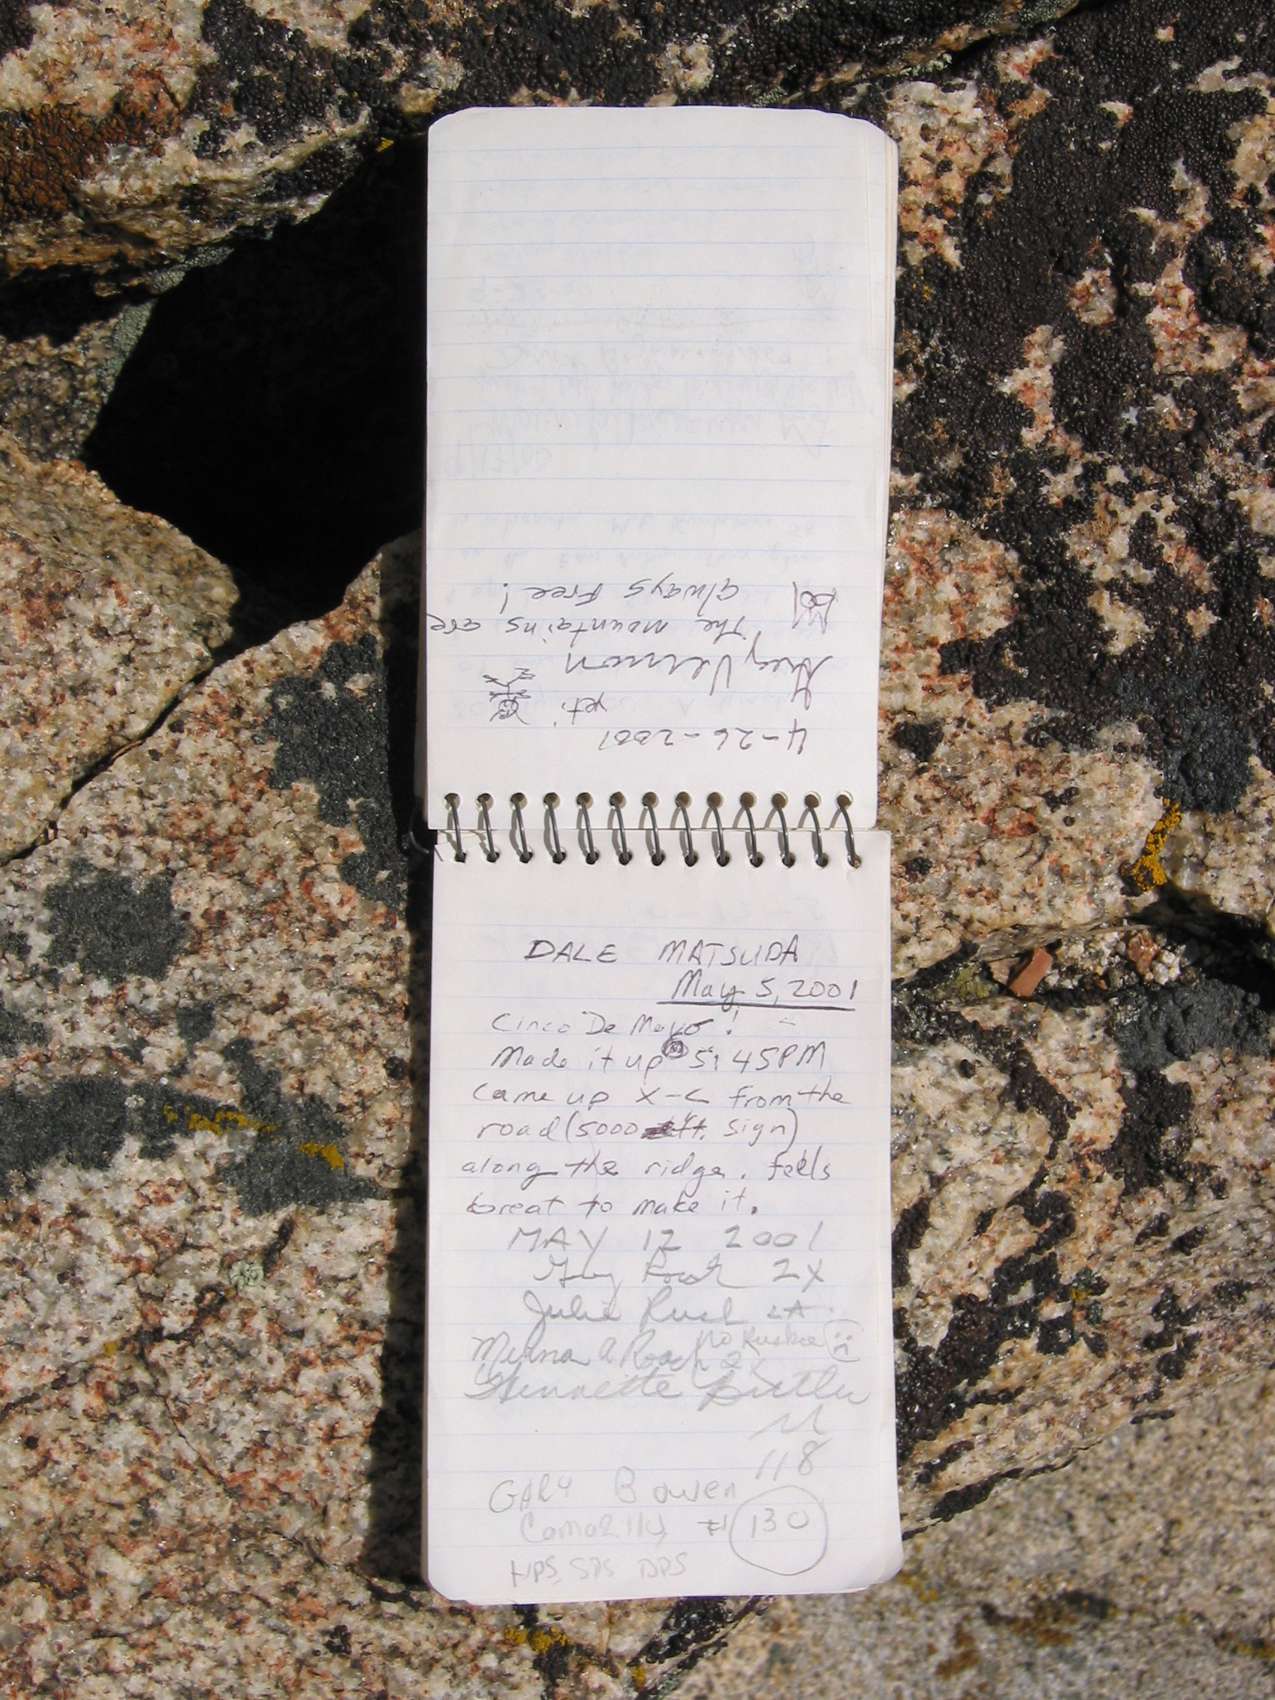 4-26-2001
Greg Vernon
"The mountains are
always free!
DALE MATSUDA
May 5, 2001
Cinco De Mayo!
Made it up @ 5:45PM
Came up X-C from the
road (5000 ft. sign)
along the ridge. feels
great to make it.
MAY 12 2001
Gary Roach 2X
Julie Rush
Myrna A Roach 2X
No Ruskie
Gennette Butler
118
GARY Bowen
Camarillo #130
HPS, SPS DPS